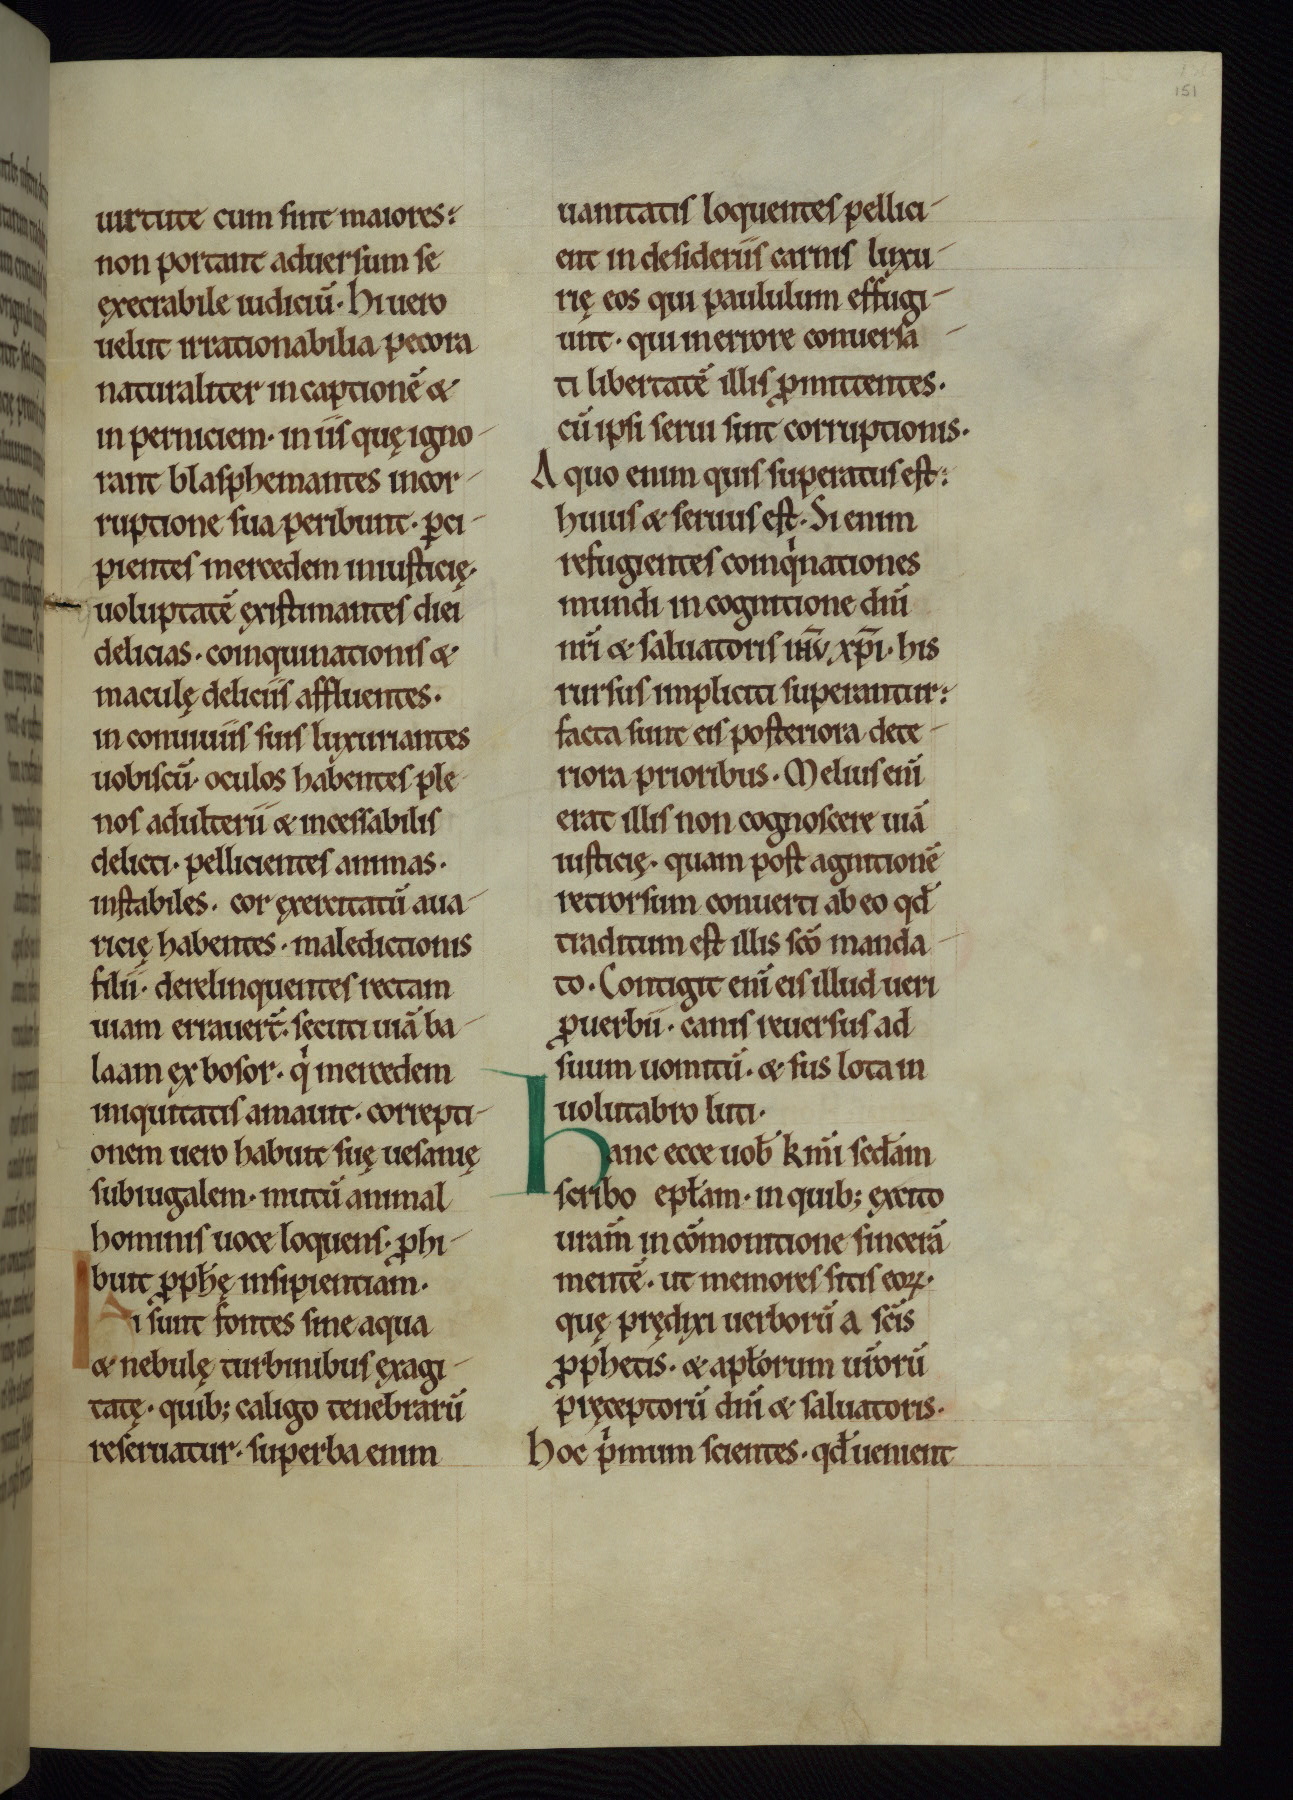 151
uirtute cum sint maiores:
non portant aduersum se
execrabile iudiciū. Hi uero
uelut irrationabilia pecora
naturaliter in captionē &
in perniciem. in iis quę igno-
rant blasphemantes incor-
ruptione sua peribunt. ꝑci-
pientes mercedem iniusticię.
uoluptatē ęxistimantes diei
delicias. coinquinationis &
maculę deliciis affluentes.
in conuiuiis suis luxuriantes
uobiscū. oculos habentes ple-
nos adulterii & incessabilis
delicti. pellicientes animas.
instabiles. cor ęxercitatū aua-
ricię habentes. maledictionis
filii. derelinquentes rectam
uiam errauer̄t. secuti uiā ba-
laam ex bosor. qͥ mercedem
iniquitatis amauit. correpti-
onem uero habuit suę uesanię
subiugalem. mutū animal
hominis uoce loquens. ꝓhi-
buit ꝓph̄ę insipientiam.
Hi sunt fontes sine aqua
& nebulę turbinibus ęxagi-
tatę. quib; caligo tenebrarū
reseruatur. superba enim
uanitatis loquentes pellici-
ent in desideriis carnis luxu-
rię eos qui paululum effugi-
unt. qui in errore conuersa-
ti libertatē illis ꝓmittentes.
cū ipsi serui sint corruptionis.
A quo enim quis superatus est:
huius & seruus est. Si enim
refugientes coinqͥnationes
mundi in cognitione dn̄i
nr̄i & saluatoris ihū xp̄i. his
rursus impliciti superantur:
facta sunt eis posteriora dete-
riora prioribus. Melius eni̅
erat illis non cognoscere uiā
iusticię. quam post agnitionē
retrorsum conuerti ab eo qd̄
traditum est illis scō manda-
to. Contigit eni̅ eis illud ueri
ꝓuerbii. canis reuersus ad
suum uomitū. & sus lota in
uolutabro luti.
Hanc ecce uob̄ km̄i secd̄am
scribo epl̄am. in quib; ęxcito
uram̄ in cōmonitione sincerā
mentē. ut memores sitis eoꝝ.
quę prędixi uerborū a sc̄is
ꝓphetis. & apl̄orum ur̄orū
pręceptorū dn̄i & saluatoris.
Hoc pͥmum scientes. qd̄ uenient